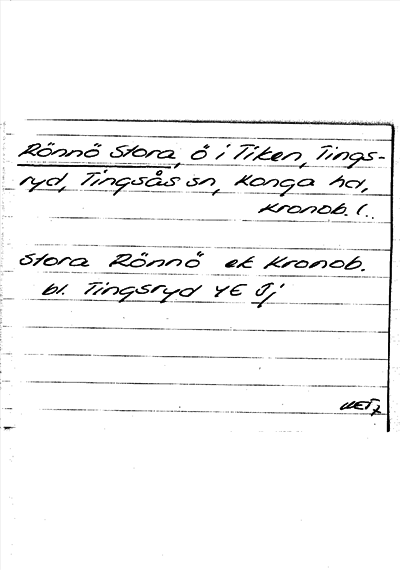 Rönnö Stora, ö i Tiken, Tings-
ryd, Tingsås sn, Konga hd,
Kronob. l.
Stora Rönnö ek Kronob.
bl. Tingsryd 4E Jj